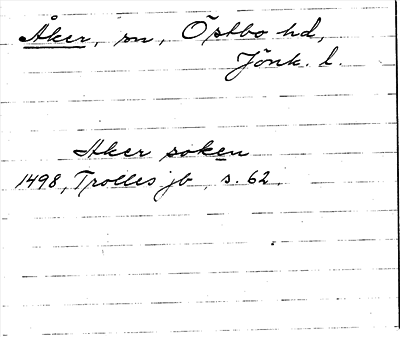 Åker, sn, Östbo hd,
Jönk. l.
Aker soken
1498, Trolles jb, s. 62.